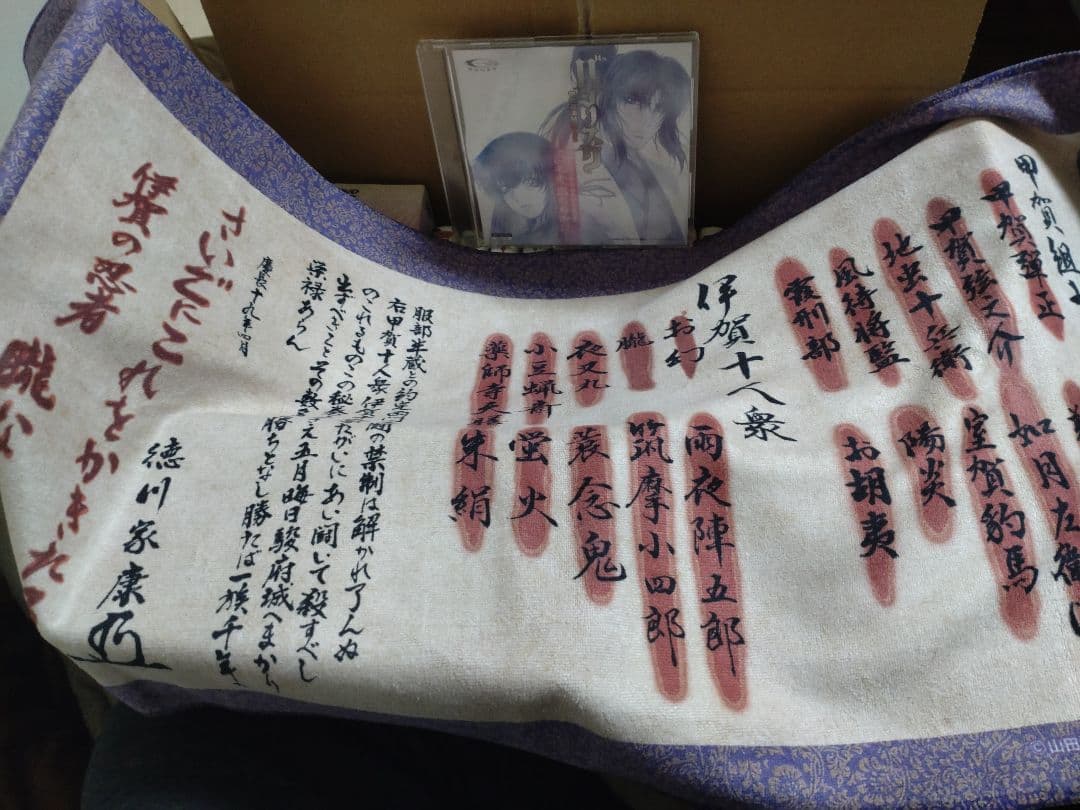 甲賀組十
甲賀彈正
甲賀弦之介
地虫十兵衛
風待将監
霞刑部
如月左衛
室賀豹馬
陽炎
お胡夷
伊賀十人衆
お幻
朧
夜叉丸
小豆蝋斎
薬師寺天膳
雨夜陣五郎
筑摩小四郎
蓑念鬼
蛍火
朱絹
服部半蔵との約 の禁制は解かれ了んぬ
右甲賀十人衆伊賀 たがいにあい闘いて殺すべし
のこれるものこの秘巻 え五月晦日駿府城へまかり
生ずべきことその数 勝ちとなし勝たば一族千年
栄禄あらん
慶長十九年四月
徳川家康
さいごにこれをかきた
伊賀の忍者
朧な
©山田